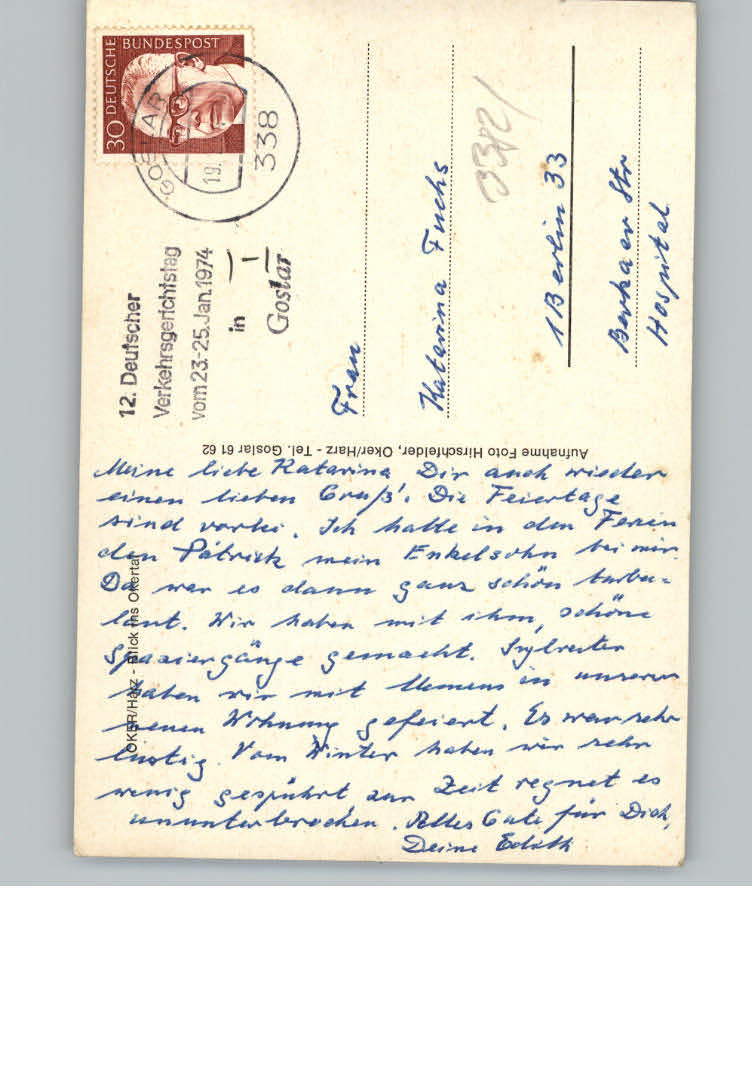 DEUTSCHE BUNDESPOST
30
GOSLAR
19.
338
12. Deutscher
Verkehrsgerichtstag
vom 23.-25. Jan. 1974
in
Goslar
3321
Frau
Katarina Fuchs
1 Berlin 33
Berkaer Str
Hospital
Aufnahme Foto Hirschfelder, Oker/Harz - Tel. Goslar 61 62
OKER/Harz - Blick ins Okertal
Meine liebe Katarina Dir auch wieder
einen lieben Gruß! Die Feiertage
sind vorbei. Ich hatte in den Ferien
den Patrick mein Enkelsohn bei mir.
Da war es dann ganz schön turbu=
lent. Wir haben mit ihm, schöne
Spaziergänge gemacht. Sylvester
haben wir mit Clemens in unserer
neuen Wohnung gefeiert. Es war sehr
lustig. Vom Winter haben wir sehr
wenig gespührt, zur Zeit regnet es
ununterbrochen. Alles Gute für Dich,
Deine Edith